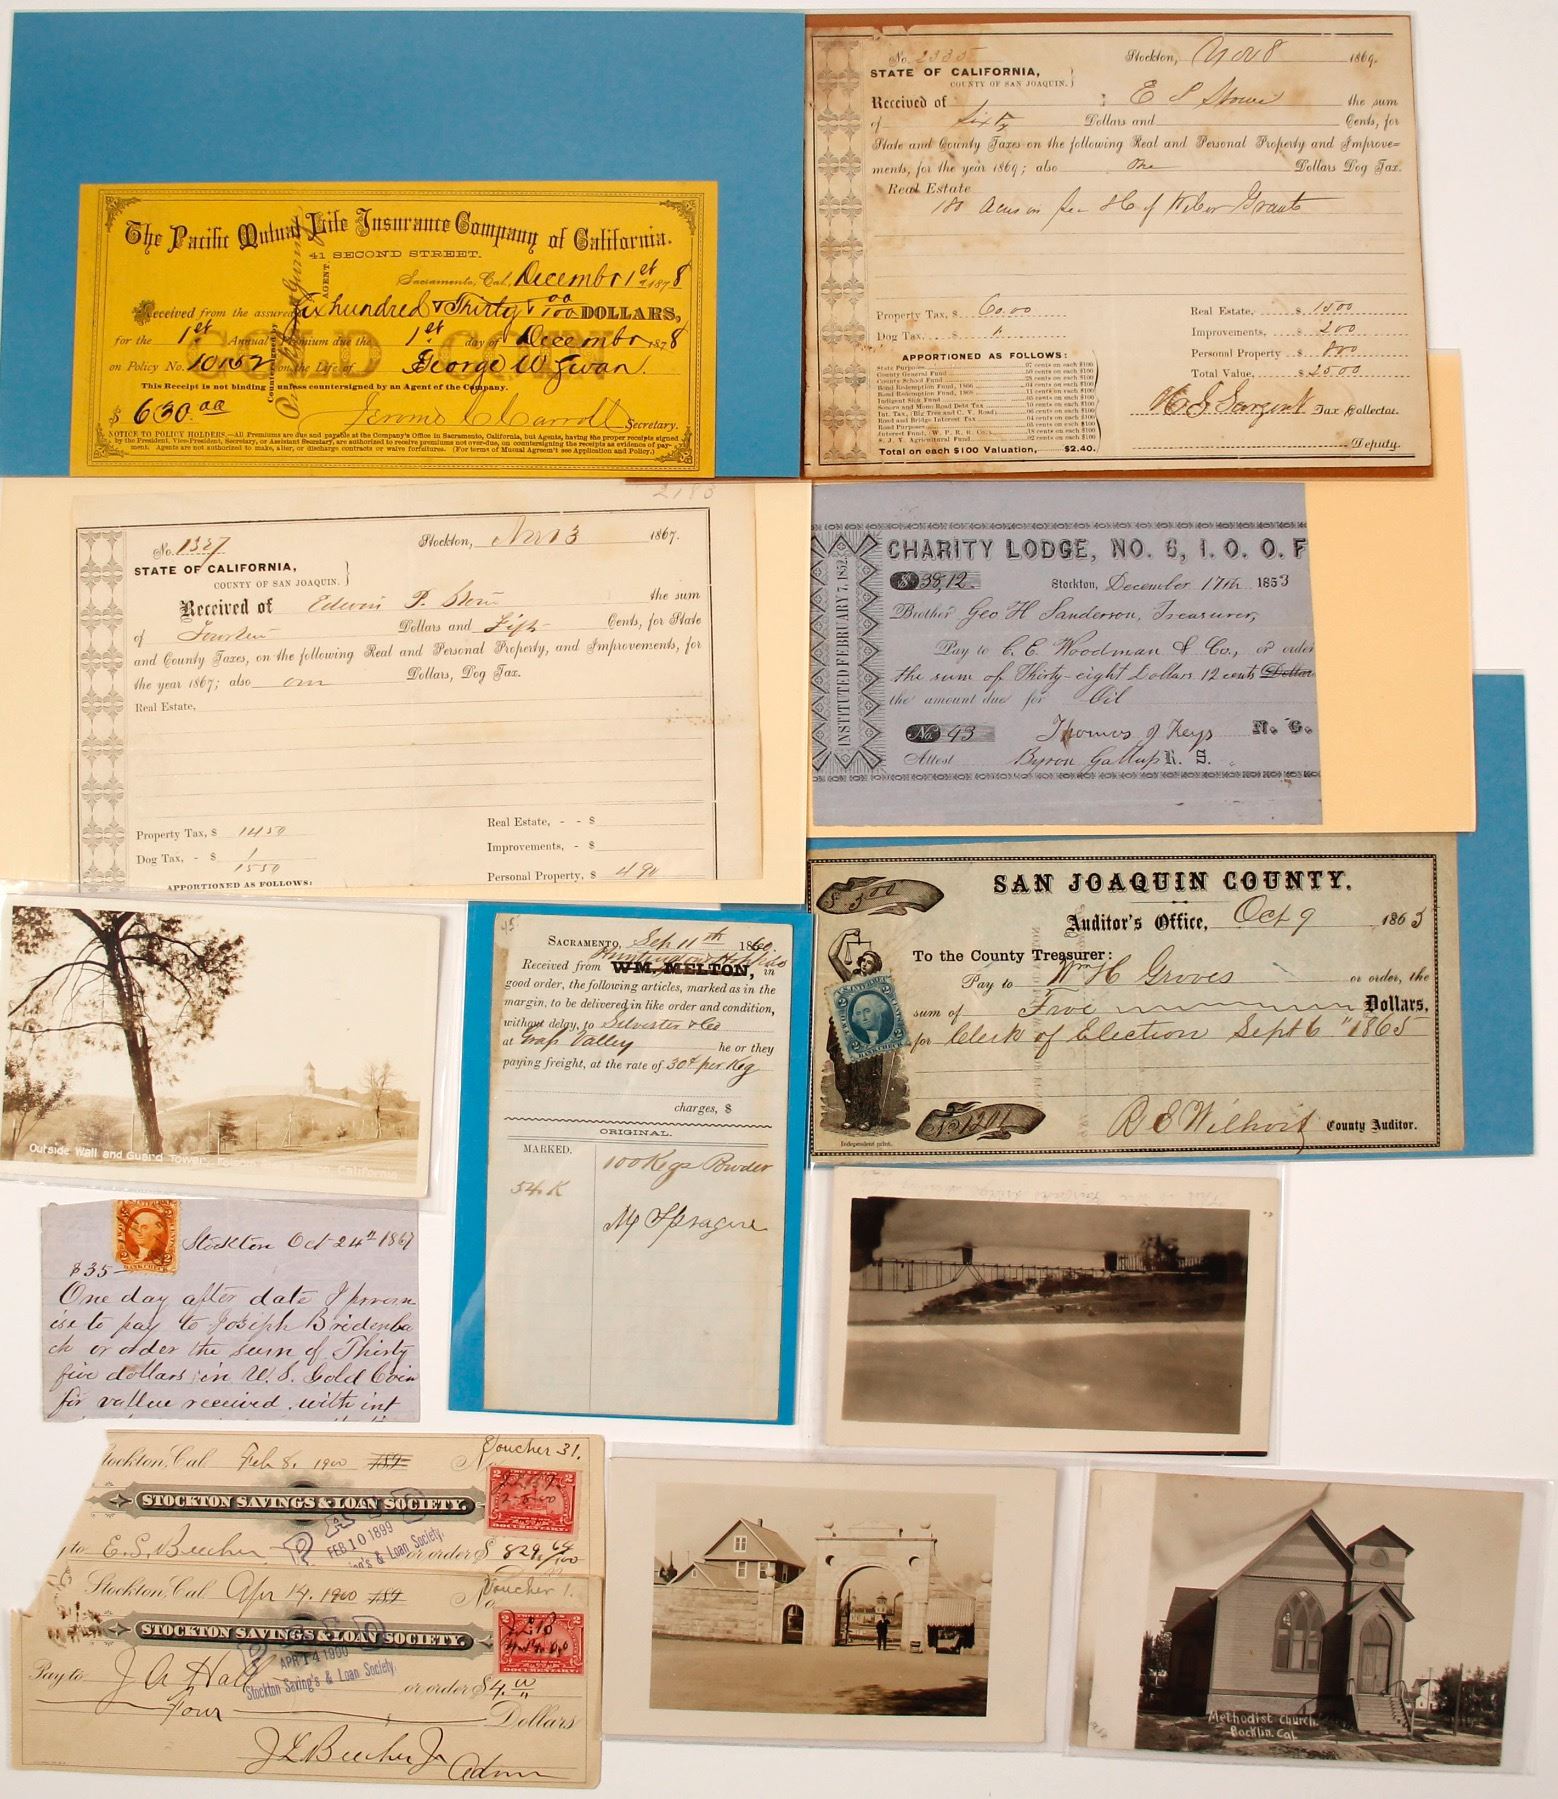 The Pacific Mutual Life Insurance Company of California.
41 SECOND STREET.
Sacramento, Cal., December 1st 1878
Received from the assured Six hundred & Thirty & 00/100 DOLLARS,
for the 1st Annual Premium due the 1st day of December 1878
on Policy No. 10052 on the Life of George W Swan.
This Receipt is not binding unless countersigned by an Agent of the Company.
GOLD COIN
Countersigned by
AGENT.
$ 630.00 Jerome C Carroll Secretary.
NOTICE TO POLICY HOLDERS.—All Premiums are due and payable at the Company's Office in Sacramento, California, but Agents, having the proper receipts signed
by the President, Vice-President, Secretary, or Assistant Secretary, are authorized to receive premiums not over-due, on countersigning the receipts as evidence of pay-
ment. Agents are not authorized to make, alter, or discharge contracts or waive forfeitures. (For terms of Mutual Agreem't see Application and Policy.)
No. 23335 Stockton, Nov 8 1869.
STATE OF CALIFORNIA,
COUNTY OF SAN JOAQUIN.
Received of E S Stowe the sum
of Sixty Dollars and Cents, for
State and County Taxes on the following Real and Personal Property and Improve-
ments, for the year 1869; also One Dollars Dog Tax.
Real Estate
180 Acres in Sec of Weber Grant
Property Tax, $ 60.00
Dog Tax, $
Real Estate, $ 1500
Improvements, $ 200
Personal Property $ 800
Total Value, $ 2500
APPORTIONED AS FOLLOWS:
State Purposes 97 cents on each $100
County General Fund
County School Fund
Bond Redemption Fund, 1866
Bond Redemption Fund, 1868
Indigent Sick Fund
Sonora and Mono Road Debt Tax
Int. Tax, (Big Tree and C. V. Road)
Road and Bridge Interest Tax
Road Purposes
Interest Fund, (W. P. R. R. Co.)
S. J. V. Agricultural Fund 02 cents on each $100
Total on each $100 Valuation, $2.40.
H S Sargent Tax Collector.
Deputy.
2183
No. 1327 Stockton, Nov 3 1867.
STATE OF CALIFORNIA,
COUNTY OF SAN JOAQUIN.
Received of Edwin P. Stowe the sum
of Fourteen Dollars and Fifty Cents, for State
and County Taxes, on the following Real and Personal Property, and Improvements, for
the year 1867; also one Dollars, Dog Tax.
Real Estate,
Property Tax, $ 14 50
Dog Tax, - $ 1
15 50
APPORTIONED AS FOLLOWS:
Real Estate, - - $
Improvements, - $
Personal Property, $ 490
INSTITUTED FEBRUARY 7, 1852.
CHARITY LODGE, NO. 6, I. O. O. F
$ 38,12. Stockton, December 17th 1853
Brother Geo H Sanderson, Treasurer,
Pay to C. E. Woodman & Co., or order
the sum of Thirty-eight Dollars 12 cents Dollars
the amount due for Oil
No. 43 Thomas J Keys N. G.
Attest Byron Gallup R. S.
SAN JOAQUIN COUNTY.
$ 5.00
Auditor's Office, Oct 9 1865
To the County Treasurer:
Pay to Wm H Groves or order, the
sum of Five Dollars,
for Clerk of Election Sept 6" 1865
No. 1201
R E Wilhoit County Auditor.
Independent print.
Outside Wall and Guard Tower, California
45
SACRAMENTO, Sep 11th 1860.
Received from Huntington Hopkins WM. MELTON, in
good order, the following articles, marked as in the
margin, to be delivered in like order and condition,
without delay, to Silvester & Co
at Grass Valley he or they
paying freight, at the rate of 30¢ per Keg
charges, $
ORIGINAL.
MARKED.
100 Kegs Powder
54 K
Stockton Oct 24th 1867
$35—
One day after date I prom
ise to pay to Joseph Bridenba
ch or order the sum of Thirty
five dollars in U.S. Gold Coin
for vallue received with int
Stockton, Cal. Feb 8, 1900 189 No. Voucher 31.
STOCKTON SAVINGS & LOAN SOCIETY.
PAID
FEB 10 1899
ing's & Loan Society.
y to E. S. Beecher or order $ 829 64/100
DOCUMENTARY.
Stockton, Cal. Apr 14, 1900 189 No. Voucher 1.
STOCKTON SAVINGS & LOAN SOCIETY.
PAID
APR 14 1900
Stockton Saving's & Loan Society.
Pay to J A Hall or order $ 4.00
Four Dollars
DOCUMENTARY.
J L Beecher Jr
Admr
Methodist Church.
Rocklin, Cal.